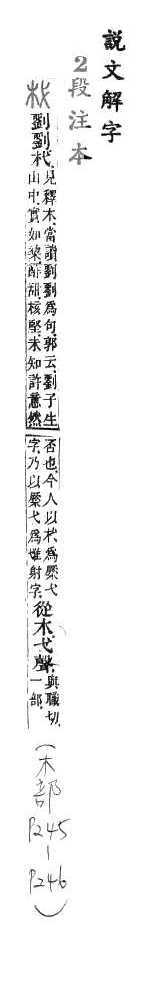 說文解字
2段注本
杙 劉劉杙。見釋木。當讀劉劉爲句。郭云。劉子生山中。實如棃。酢甜。核堅。未知許意然否也。今人以杙爲橜弋字。乃以橜弋爲隿射字。從木。弋聲。與職切。一部。(木部P245-P246)